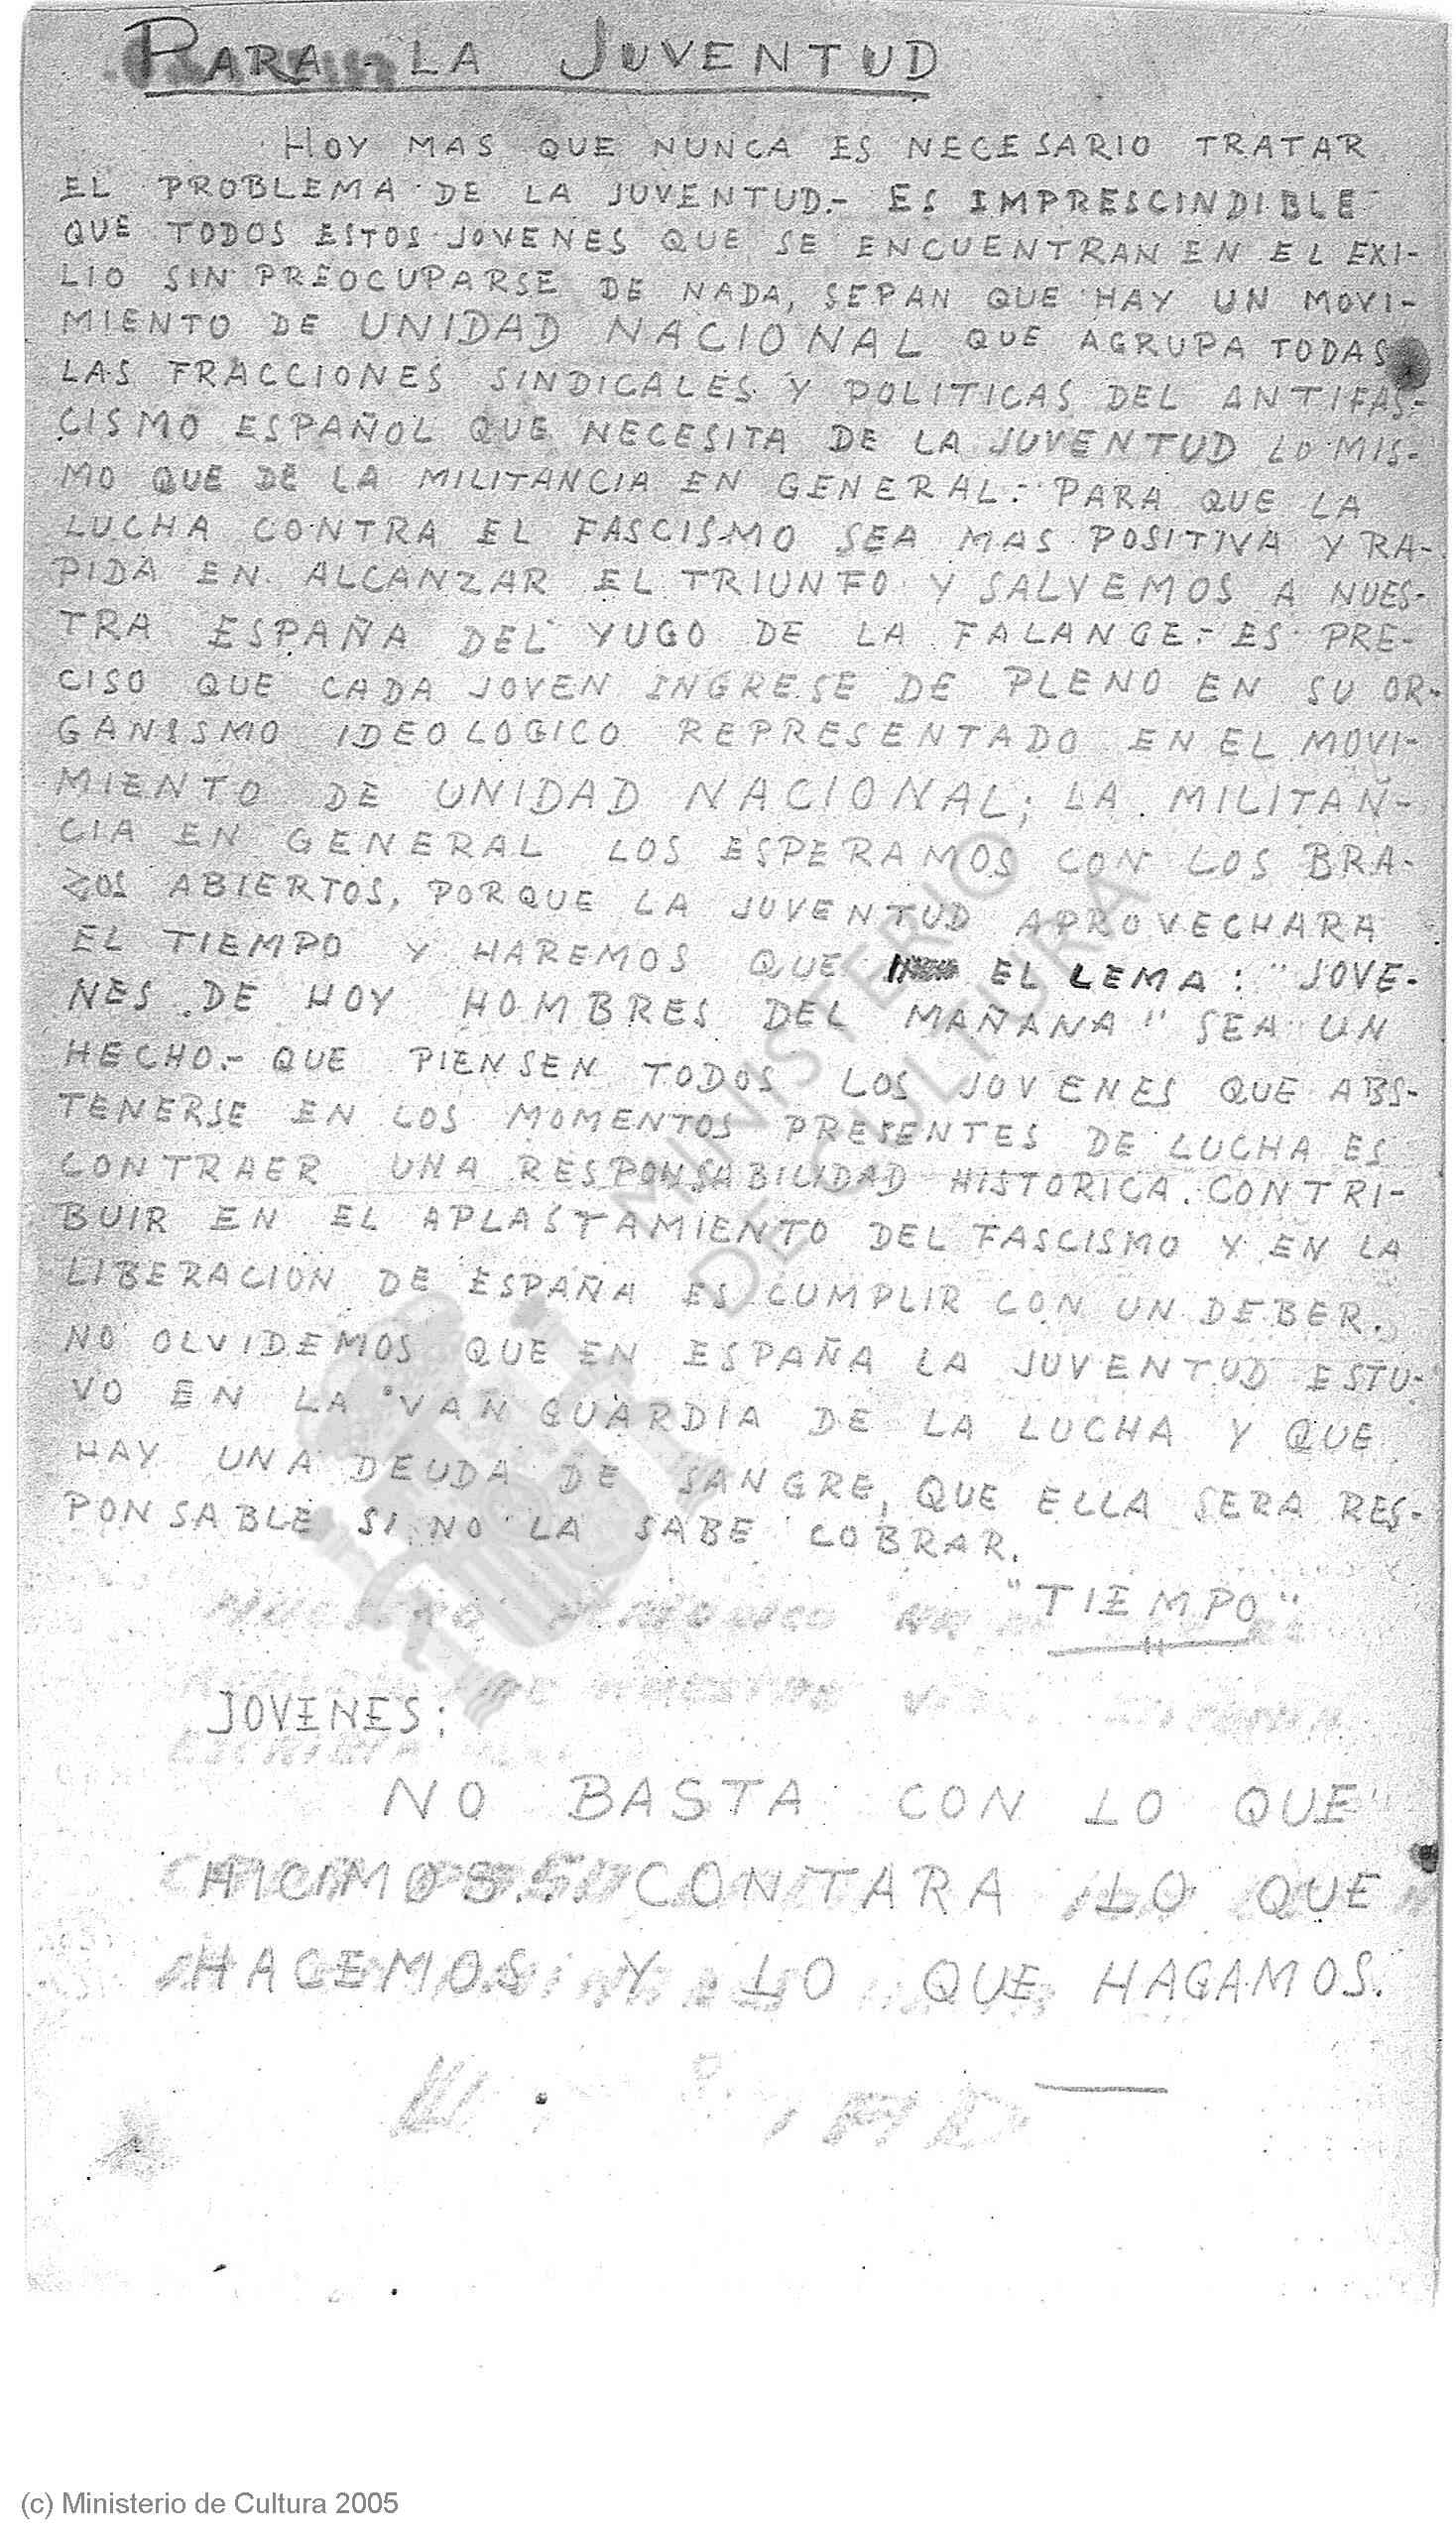 PARA LA JUVENTUD
HOY MAS QUE NUNCA ES NECESARIO TRATAR
EL PROBLEMA DE LA JUVENTUD.- ES IMPRESCINDIBLE
QUE TODOS ESTOS JOVENES QUE SE ENCUENTRAN EN EL EXI-
LIO SIN PREOCUPARSE DE NADA, SEPAN QUE HAY UN MOVI-
MIENTO DE UNIDAD NACIONAL QUE AGRUPA TODAS
LAS FRACCIONES SINDICALES Y POLITICAS DEL ANTIFAS-
CISMO ESPAÑOL QUE NECESITA DE LA JUVENTUD LO MIS-
MO QUE DE LA MILITANCIA EN GENERAL.- PARA QUE LA
LUCHA CONTRA EL FASCISMO SEA MAS POSITIVA Y RA-
PIDA EN ALCANZAR EL TRIUNFO Y SALVEMOS A NUES-
TRA ESPAÑA DEL YUGO DE LA FALANGE.- ES PRE-
CISO QUE CADA JOVEN INGRESE DE PLENO EN SU OR-
GANISMO IDEOLOGICO REPRESENTADO EN EL MOVI-
MIENTO DE UNIDAD NACIONAL; LA MILITAN-
CIA EN GENERAL LOS ESPERAMOS CON LOS BRA-
ZOS ABIERTOS, PORQUE LA JUVENTUD APROVECHARA
EL TIEMPO Y HAREMOS QUE EL LEMA: "JOVE-
NES DE HOY HOMBRES DEL MAÑANA" SEA UN
HECHO.- QUE PIENSEN TODOS LOS JOVENES QUE ABS-
TENERSE EN LOS MOMENTOS PRESENTES DE LUCHA ES
CONTRAER UNA RESPONSABILIDAD HISTORICA. CONTRI-
BUIR EN EL APLASTAMIENTO DEL FASCISMO Y EN LA
LIBERACION DE ESPAÑA ES CUMPLIR CON UN DEBER.
NO OLVIDEMOS QUE EN ESPAÑA LA JUVENTUD ESTU-
VO EN LA VANGUARDIA DE LA LUCHA Y QUE
HAY UNA DEUDA DE SANGRE, QUE ELLA SERA RES-
PONSABLE SI NO LA SABE COBRAR.
"TIEMPO"
JOVENES:
NO BASTA CON LO QUE
HICIMOS. CONTARA LO QUE
HACEMOS Y LO QUE HAGAMOS.
MINISTERIO
DE CULTURA
(c) Ministerio de Cultura 2005